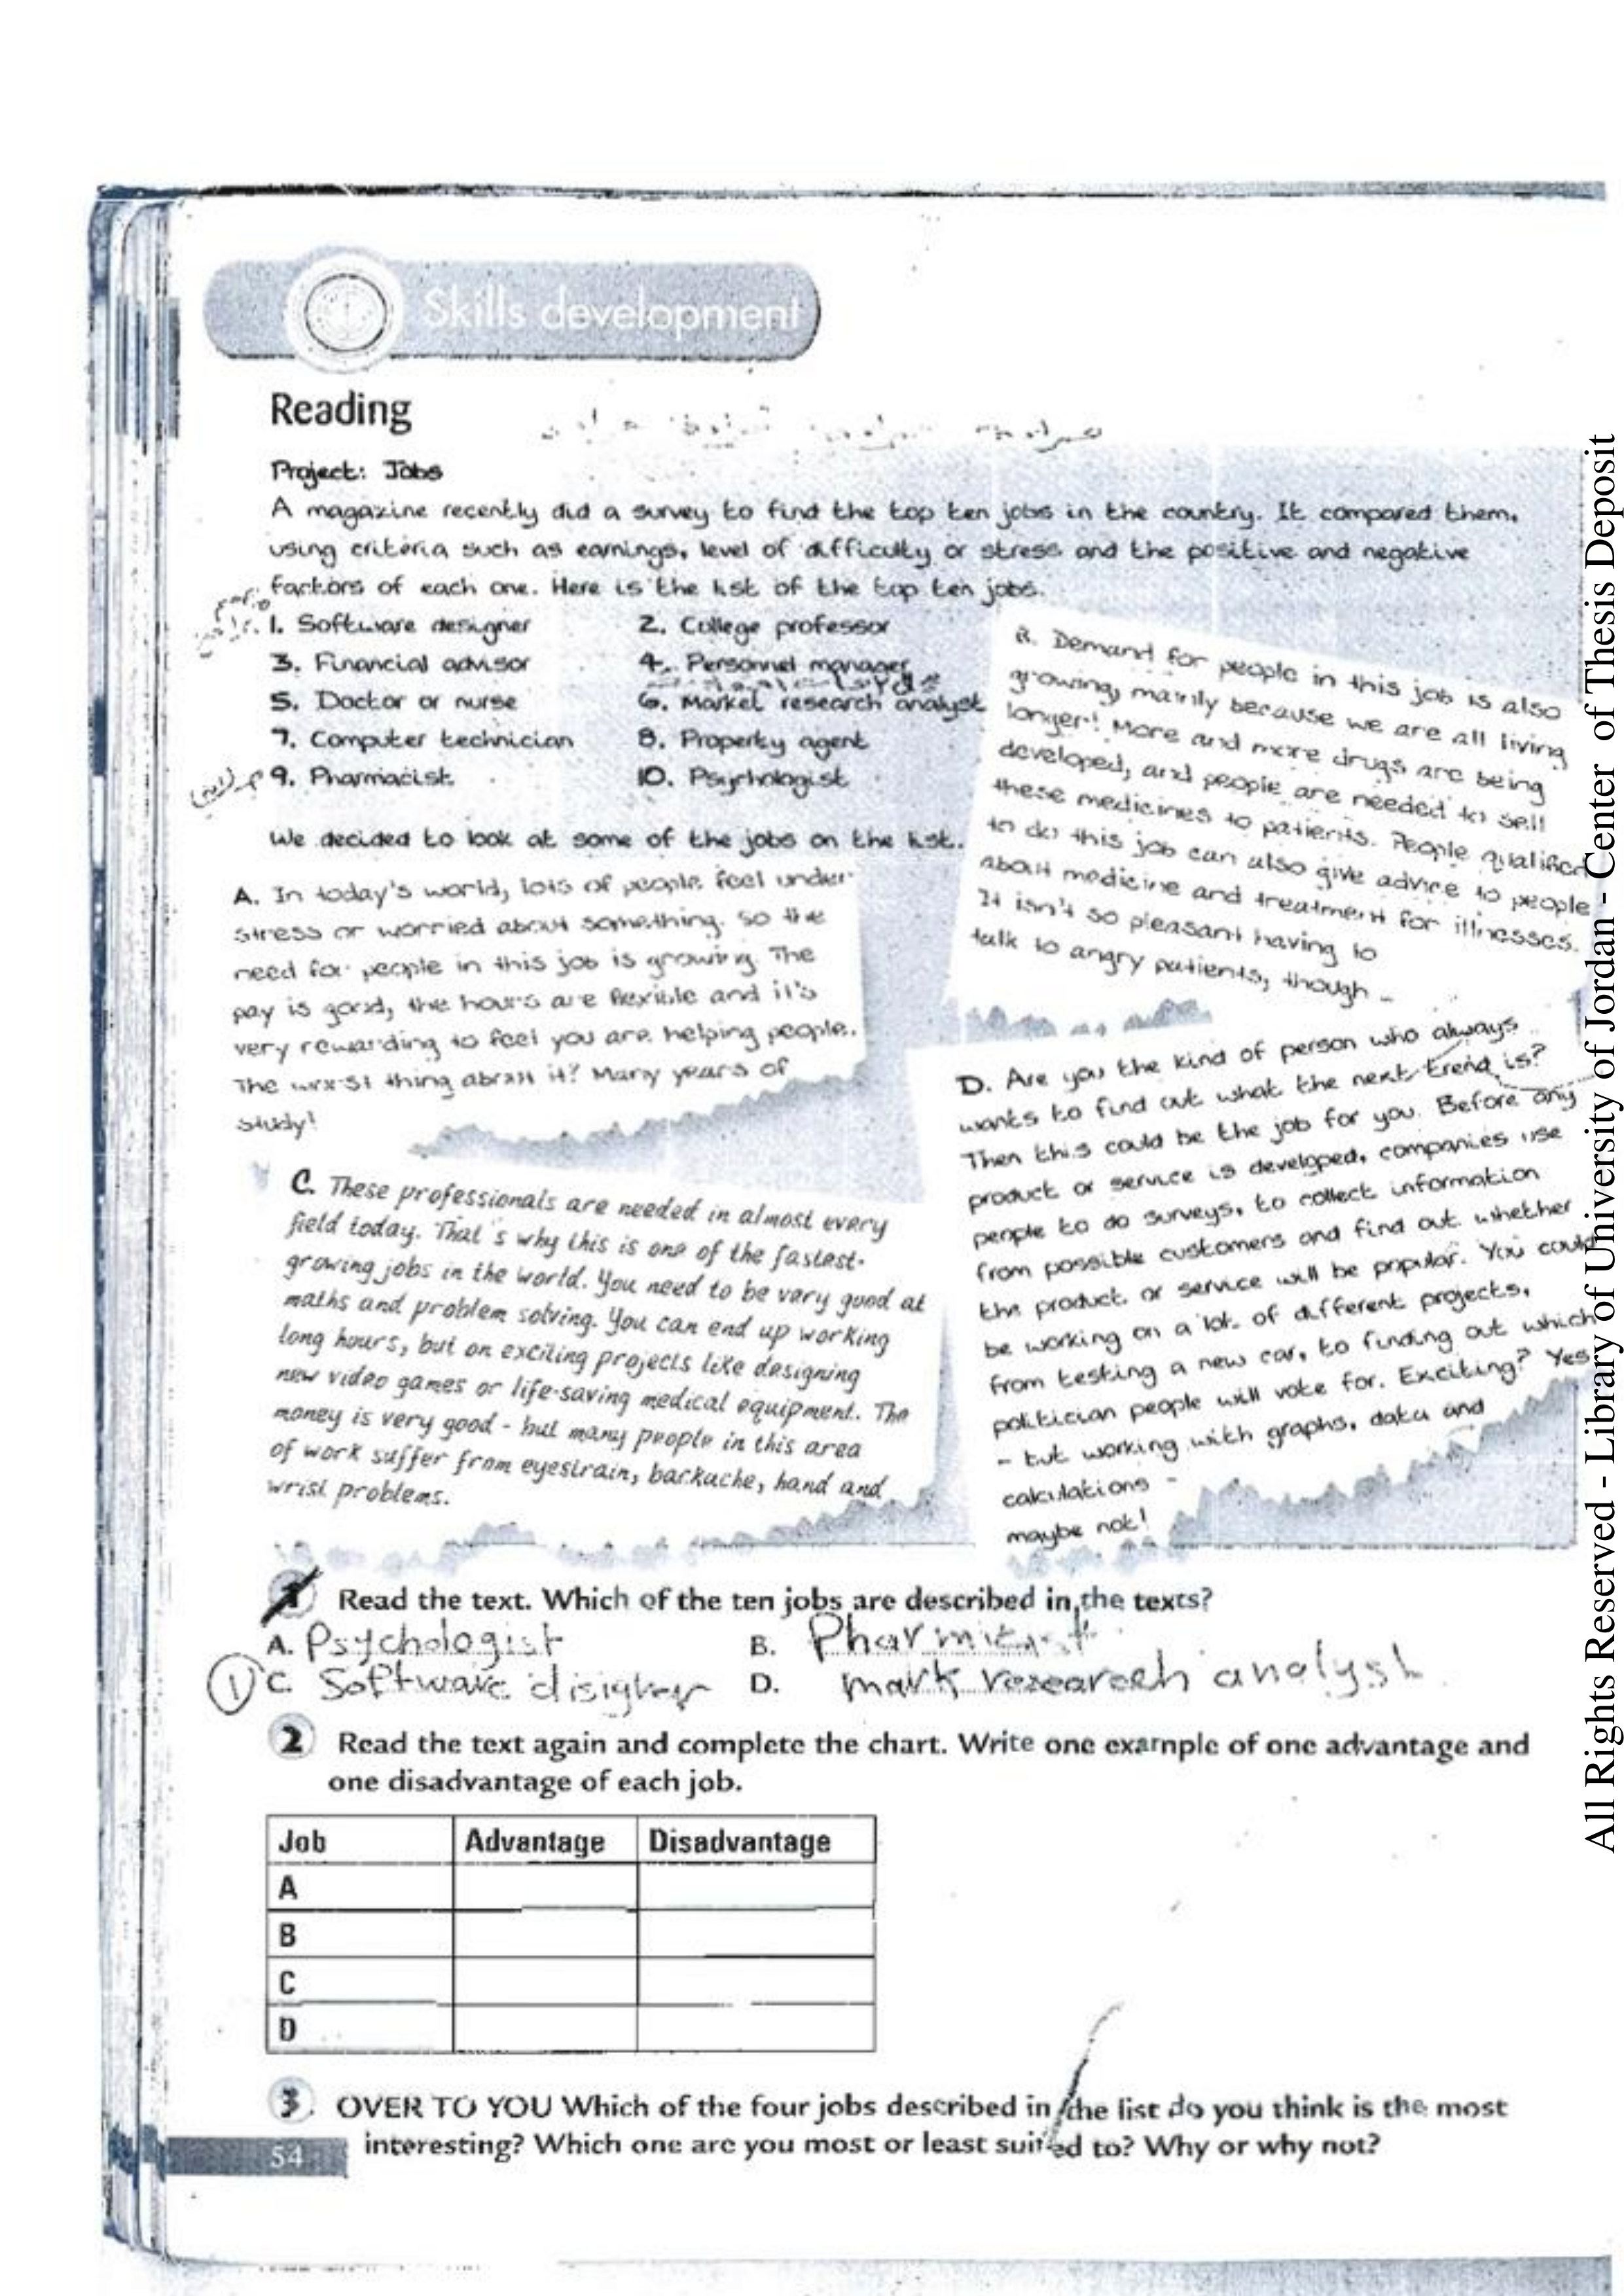 Skills development
Reading
Project: Jobs
A magazine recently did a survey to find the top ten jobs in the country. It compared them,
using criteria such as earnings, level of difficulty or stress and the positive and negative
factors of each one. Here is the list of the top ten jobs.
1. Software designer
2. College professor
3. Financial advisor
4. Personnel manager
5. Doctor or nurse
6. Market research analyst
7. Computer technician
8. Property agent
9. Pharmacist
10. Psychologist
We decided to look at some of the jobs on the list.
A. In today's world, lots of people feel under
stress or worried about something. So the
need for people in this job is growing. The
pay is good, the hours are flexible and it's
very rewarding to feel you are helping people.
The worst thing about it? Many years of
study!
B. Demand for people in this job is also
growing, mainly because we are all living
longer! More and more drugs are being
developed, and people are needed to sell
these medicines to patients. People qualified
to do this job can also give advice to people
about medicine and treatment for illnesses.
It isn't so pleasant having to
talk to angry patients, though -
C. These professionals are needed in almost every
field today. That's why this is one of the fastest-
growing jobs in the world. You need to be very good at
maths and problem solving. You can end up working
long hours, but on exciling projects like designing
new video games or life-saving medical equipment. The
money is very good - but many people in this area
of work suffer from eyestrain, backache, hand and
wrist problems.
D. Are you the kind of person who always
wants to find out what the next trend is?
Then this could be the job for you. Before any
product or service is developed, companies use
people to do surveys, to collect information
from possible customers and find out whether
the product or service will be popular. You could
be working on a lot of different projects,
from testing a new car, to finding out which
politician people will vote for. Exciting? Yes
- but working with graphs, data and
calculations -
maybe not!
1 Read the text. Which of the ten jobs are described in the texts?
A. Psychologist
B.
1 C. Software disigner
D. mark researeeh analyst
2 Read the text again and complete the chart. Write one example of one advantage and
one disadvantage of each job.
Job Advantage Disadvantage
A
B
C
D
3. OVER TO YOU Which of the four jobs described in the list do you think is the most
interesting? Which one are you most or least suited to? Why or why not?
54
All Rights Reserved - Library of University of Jordan - Center of Thesis Deposit